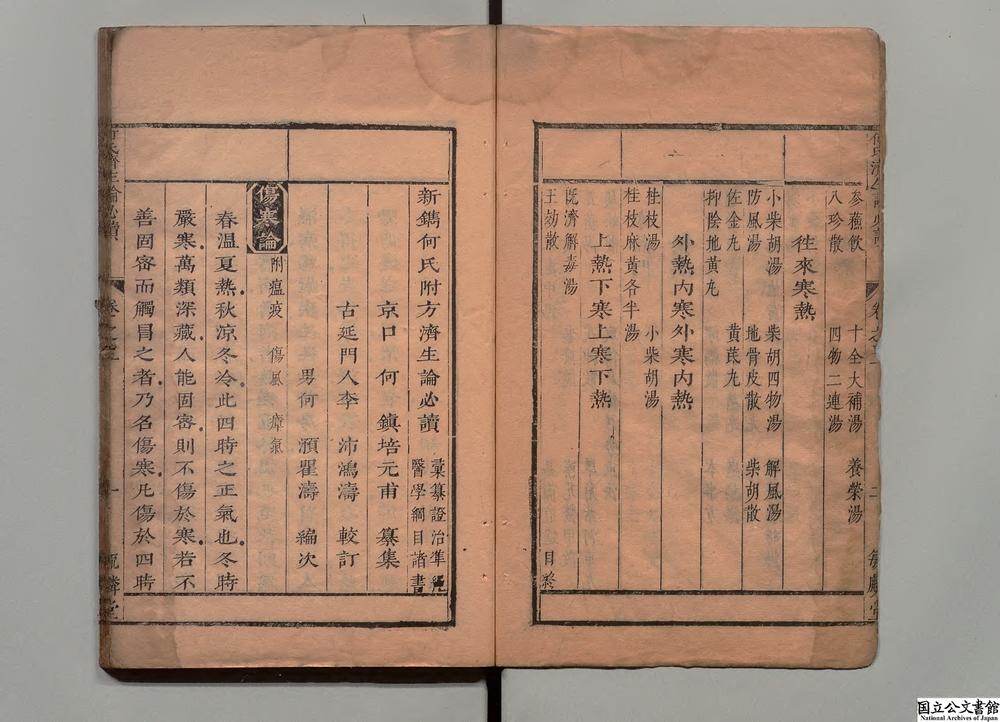 參蘓飲 十全大補湯 養榮湯
八珍散 四物二連湯
往來寒熱
小柴胡湯 柴胡四物湯 解風湯
防風湯 地骨皮散 柴胡散
佐金丸 黄茋丸
抑陰地黄丸
外熱內寒外寒內熱
桂枝湯 小柴胡湯
桂枝麻黄各半湯
上熱下寒上寒下熱
既濟解毒湯
王劾散 目終
新鐫何氏附方濟生論必讀 彙纂證治準繩
醫學綱目諸書
京口 何 鎮培元甫 纂集
古延門人李 沛鴻濤 較訂
男何 湏瞿濤 編次
傷寒論 附瘟疫 傷風 瘴氣
春溫夏熱秋涼冬冷此四時之正氣也冬時
嚴寒萬類深藏人能固密則不傷於寒若不
善固密而觸冒之者乃名傷寒凡傷於四時
何氏濟生論必讀 卷之一 一
国立公文書館
National Archives of Japan